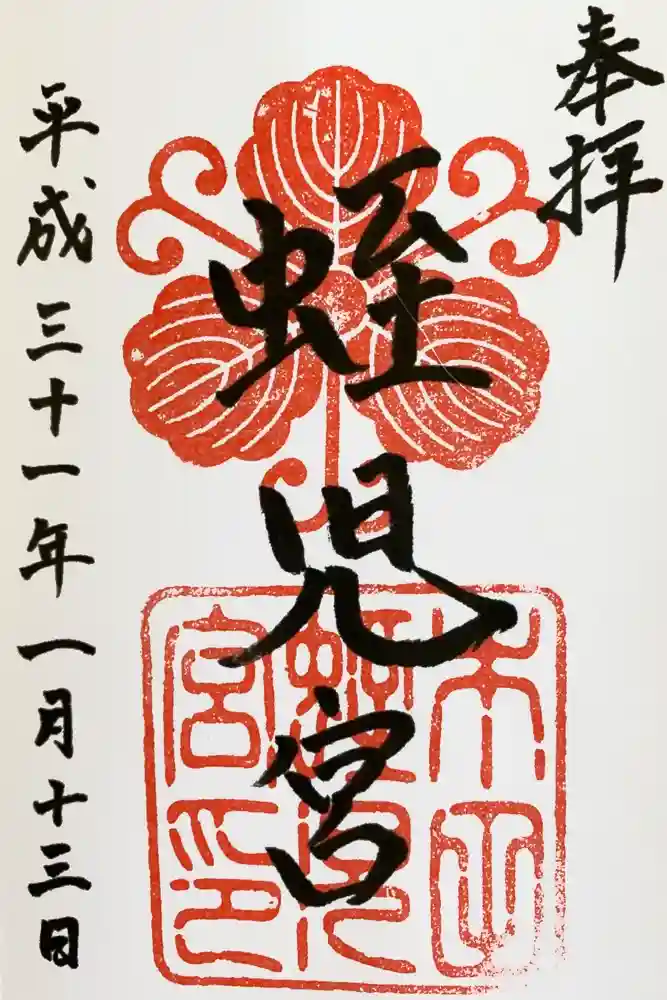 奉拝
蛭児宮
平成三十一年一月十三日